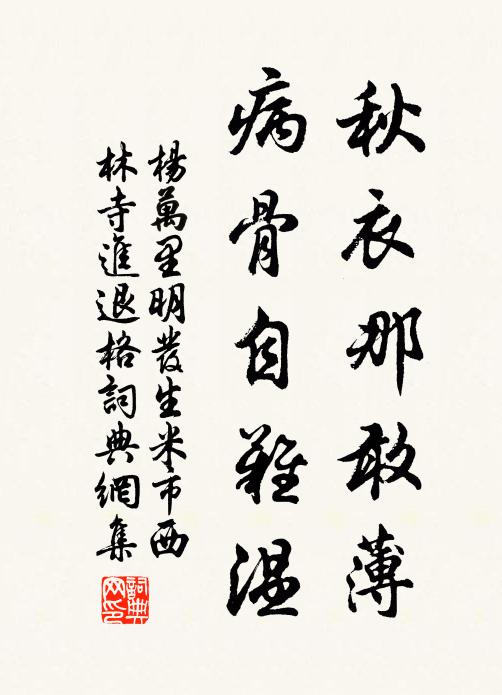 秋衣那敢薄
病骨自難溫
楊萬里明發生米市西
林寺進退格詞典網集
詞典網印